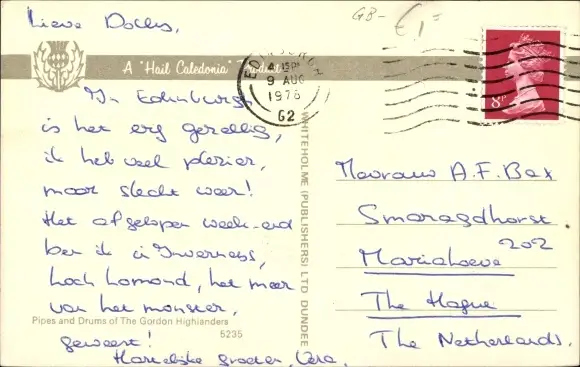 Lieve Dokus,
GB- £1=
A "Hail Caledonia" Product
EDINBURGH
4 15PM
9 AUG
1978
G2
8P
In Edinburgh
is het erg gezellig,
ik heb veel plezier,
maar slecht weer!
Het afgelopen week-end
ben ik in Inverness,
Loch Lomond, het meer
van het monster,
geweest!
Hartelijke groeten, Vera.
Pipes and Drums of The Gordon Highlanders
5235
WHITEHOLME (PUBLISHERS) LTD DUNDEE
Mevrouw A.F. Bax
Smaragdhorst
202
Mariahoeve
The Hague
The Netherlands.